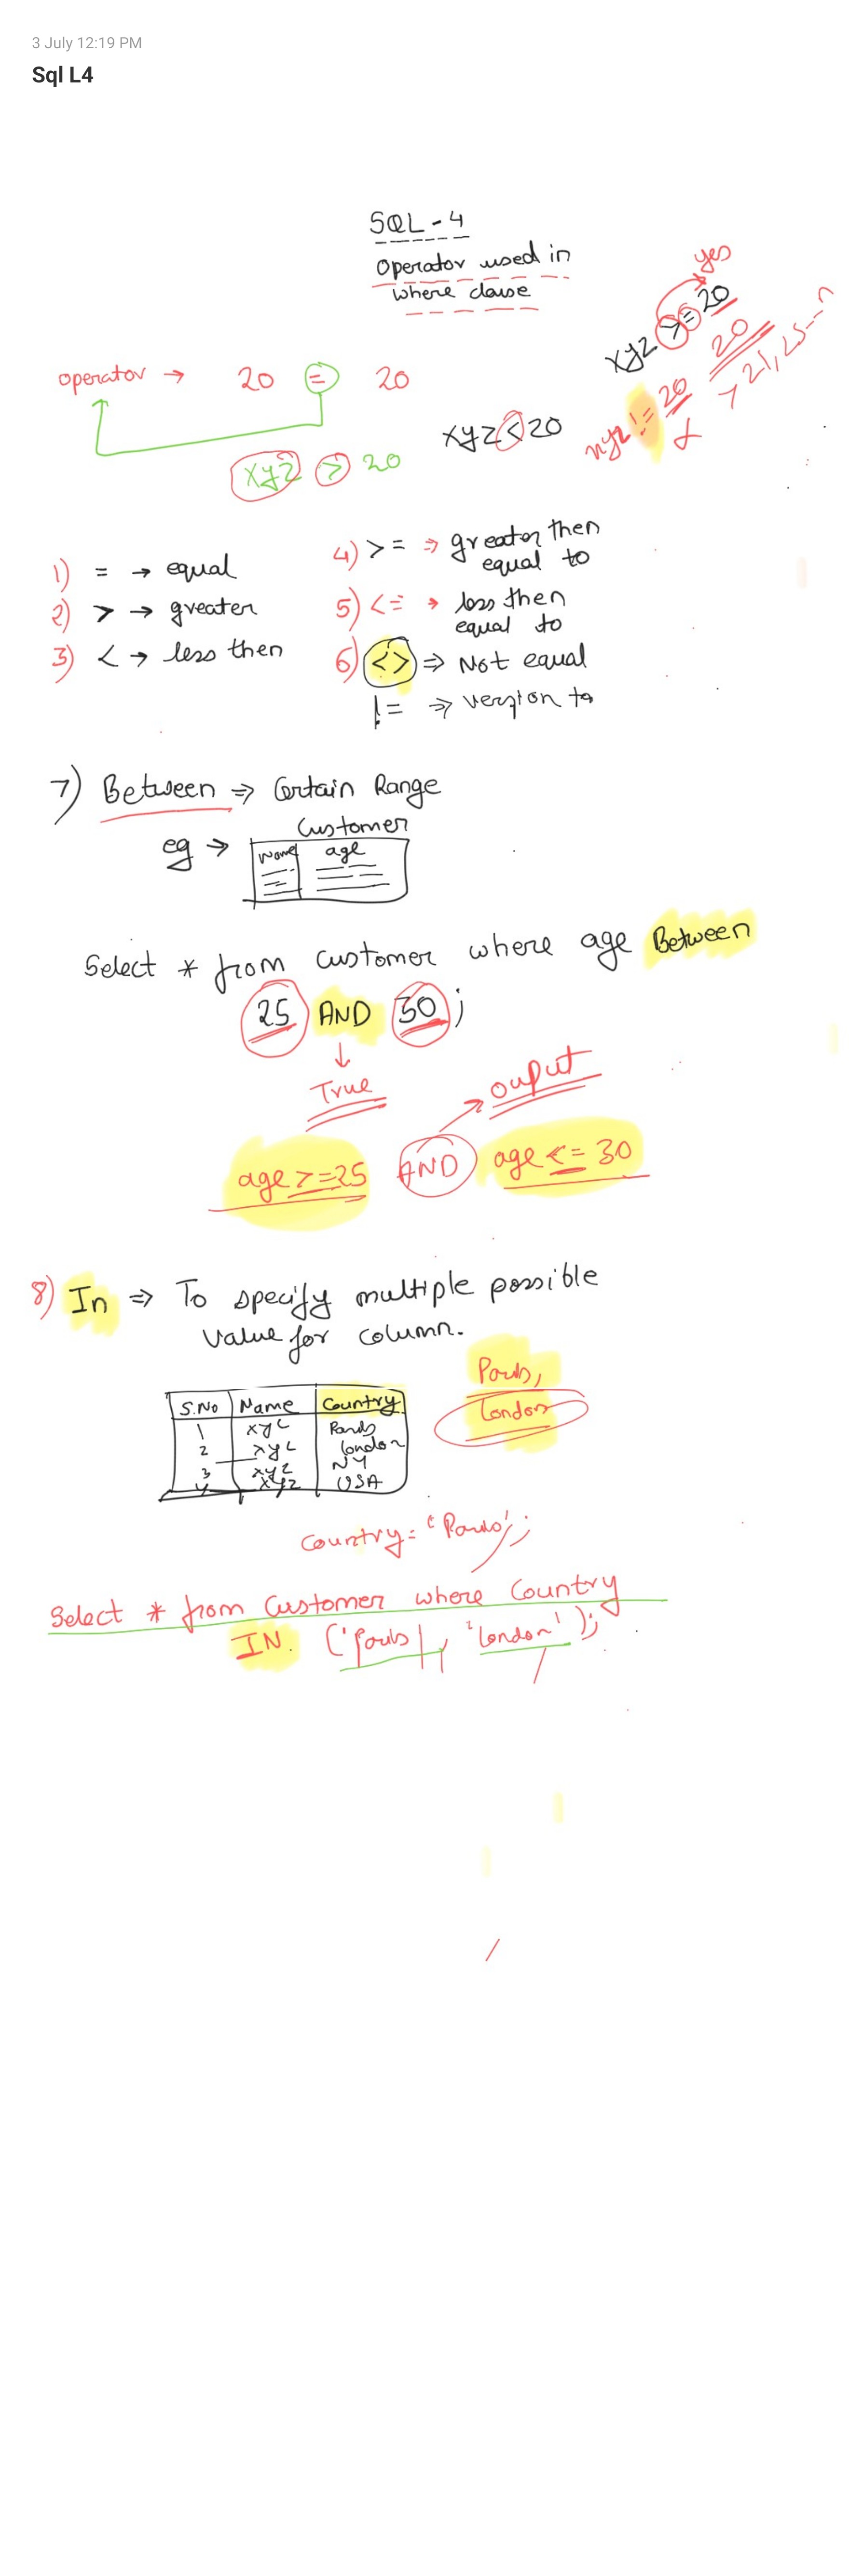 3 July 12:19 PM
Sql L4
SQL - 4
Operator used in
where clause
yes
xyz >= 20
20
> 21, 25 --- n
xyz != 20
operator → 20 = 20
xyz < 20
xyz > 20
1) = → equal
2) > → greater
3) < → less then
4) >= ⇒ greater then
equal to
5) <= → less then
equal to
6) <> ⇒ Not equal
!= ⇒ version to
7) Between ⇒ Certain Range
Customer
eg → Name age
Select * from customer where age Between
25 AND 30 ;
↓
True
ouput
age >=25 AND age <= 30
8) In ⇒ To specify multiple possible
value for column.
Paris,
London
S.No Name Country
1 xyz Paris
2 xyz London
3 xyz NY
4 xyz USA
Country = 'Paris';
Select * from Customer where Country
IN ('Paris', 'London');